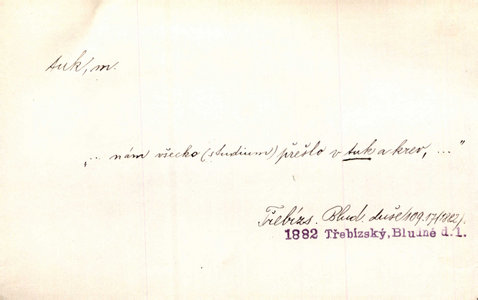 tuk, m.
„.. nám všecko (studium) přešlo v tuk a krev, ..."
Třebízs. Blud. duše/109.17 (1882).
1882 Třebízský, Bludné d. 1.